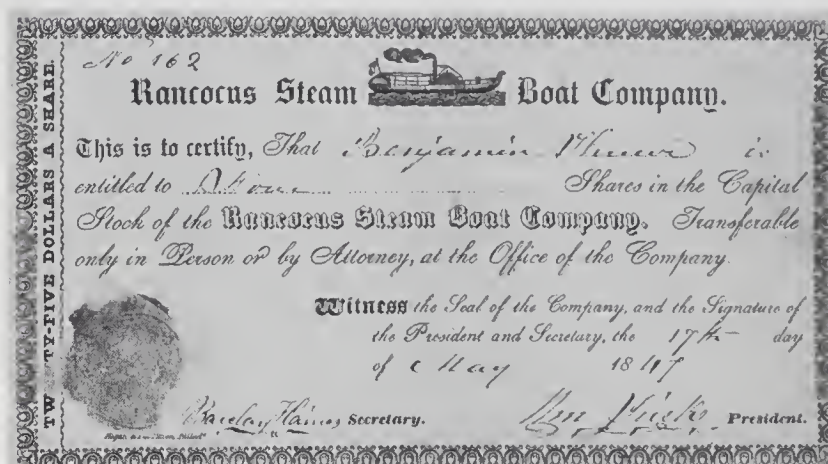 No 162
Rancocus Steam Boat Company.
This is to certify, That Benjamin is
entitled to Four Shares in the Capital
Stock of the Rancocus Steam Boat Company. Transferable
only in Person or by Attorney, at the Office of the Company.
Witness the Seal of the Company, and the Signature of
the President and Secretary, the 17th day
of May 1847
Barclay Haines Secretary.
President.
TWENTY-FIVE DOLLARS A SHARE.